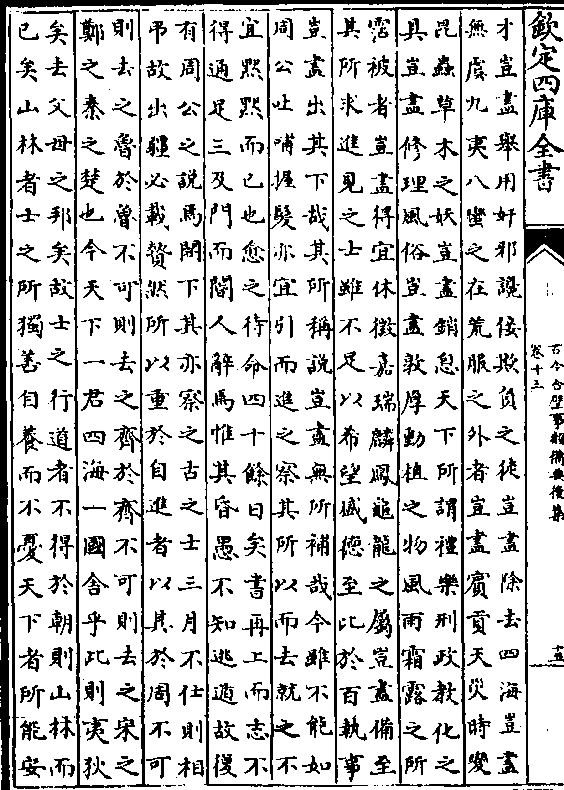 欽定四庫全書
古今合璧事類備要後集
卷十三
才豈盡舉用奸邪讒佞欺負之徒豈盡除去四海豈盡
無虞九夷八蠻之在荒服之外者豈盡賓貢天災時變
昆蟲草木之妖豈盡銷息天下所謂禮樂刑政教化之
具豈盡修理風俗豈盡敦厚動植之物風雨霜露之所
霑被者豈盡得宜休徵嘉瑞麟鳳龜龍之屬豈盡備至
其所求進見之士雖不足以希望盛德至比於百執事
豈盡出其下哉其所稱説豈盡無所補哉今雖不能如
周公吐哺握髮亦宜引而進之察其所以而去就之不
宜黙黙而已也愈之待命四十餘日矣書再上而志不
得通足三及門而閽人辭焉惟其昏愚不知逃遁故復
有周公之説焉閤下其亦察之古之士三月不仕則相
弔故出疆必載贄然所以重於自進者以其於周不可
則去之魯於魯不可則去之齊於齊不可則去之宋之
鄭之秦之楚也今天下一君四海一國舍乎此則夷狄
矣去父母之邦矣故士之行道者不得於朝則山林而
已矣山林者士之所獨善自養而不憂天下者所能安